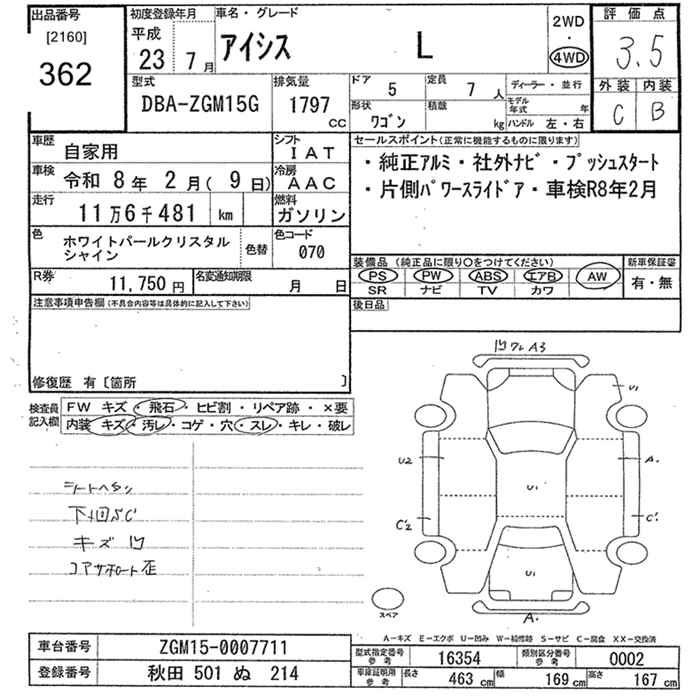 出品番号
[2160]
362
初度登録年月
平成
23 7月
車名・グレード
アイシス L
2WD
・
4WD
評価点
3.5
外装 内装
C B
型式
DBA-ZGM15G
排気量
1797 CC
ドア 5
定員 7 人
ディーラー・並行
形状 ワゴン
積載 kg
モデル年式 年
ハンドル 左・右
車歴 自家用
シフト IAT
車検 令和 8年 2月( 9日)
冷房 AAC
走行 11万6千481 km
燃料 ガソリン
色 ホワイトパールクリスタル
シャイン
色替
色コード 070
セールスポイント(正常に機能するものに限ります)
・純正アルミ・社外ナビ・プッシュスタート
・片側パワースライドドア・車検R8年2月
R券 11,750円
名変通知期限 月 日
装備品(純正品に限り○をつけてください)
PS PW ABS エアB AW
SR ナビ TV カワ
新車保証書
有・無
後日品
注意事項申告欄(不具合内容等は具体的に記入して下さい)
修復歴 有〔箇所 〕
検査員
記入欄
FW キズ・飛石・ヒビ割・リペア跡・×要
内装 キズ・汚レ・コゲ・穴・スレ・キレ・破レ
シートヘタリ
下廻SC
キズ凹
コアサポート歪
凹ワレ A3
U1
U2
A.
U1
C'2
C'
U1
A.
スペア
A-キズ E-エクボ U-凹み W-補修跡 S-サビ C-腐食 XX-交換済
車台番号 ZGM15-0007711
登録番号 秋田 501 ぬ 214
型式指定番号
参考
16354
類別区分番号
参考
0002
車庫証明用
参考
長さ 463 cm
幅 169 cm
高さ 167 cm